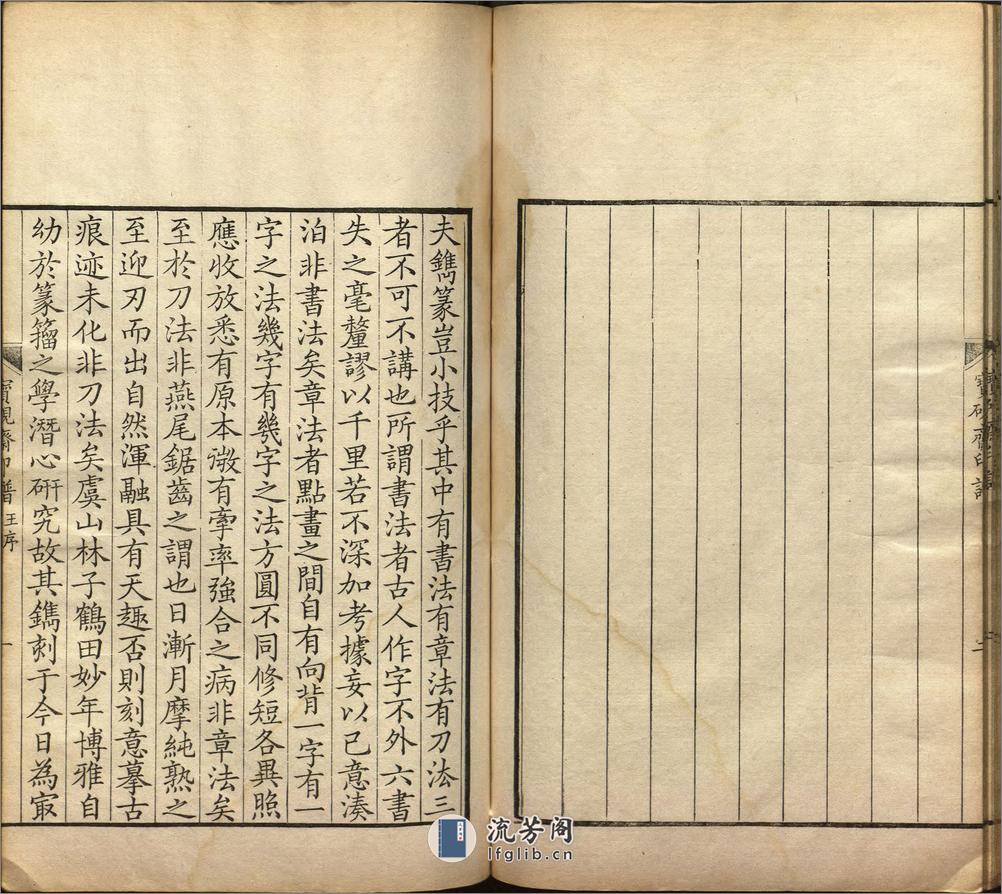 寶硯齋印譜
二
夫鐫篆豈小技乎其中有書法有章法有刀法三
者不可不講也所謂書法者古人作字不外六書
失之毫釐謬以千里若不深加考據妄以己意湊
泊非書法矣章法者點畫之間自有向背一字有一
字之法幾字有幾字之法方圓不同修短各異照
應收放悉有原本微有牽率強合之病非章法矣
至於刀法非燕尾鋸齒之謂也日漸月摩純熟之
至迎刃而出自然渾融具有天趣否則刻意摹古
痕迹未化非刀法矣虞山林子鶴田妙年博雅自
幼於篆籀之學潛心研究故其鐫刻于今日為㝡
寶硯齋印譜 王序
一
流芳阁
lfglib.cn